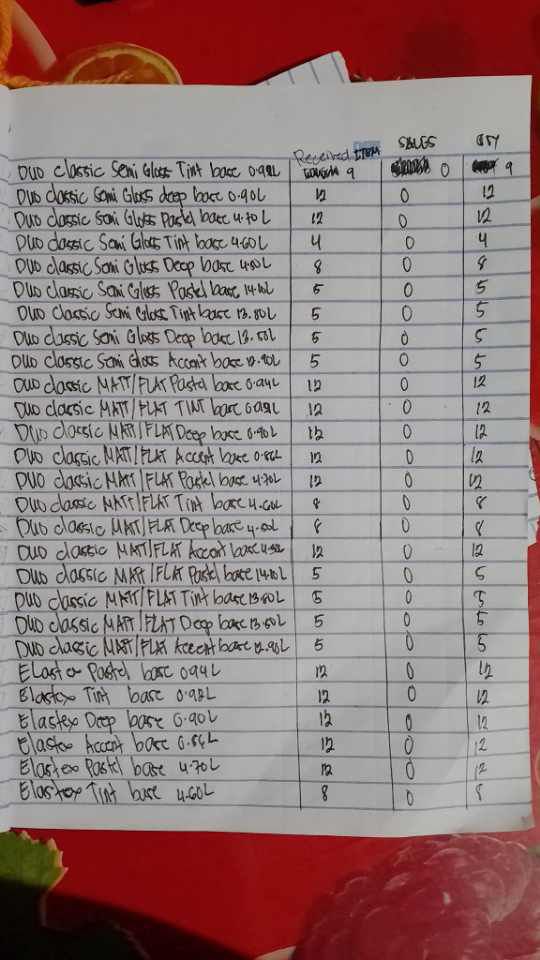 Received ITEM SALES QTY
Duo classic Semi Gloss Tint base 0.92L 9 0 9
Duo classic Semi Gloss deep base 0.90L 12 0 12
Duo classic Semi Gloss Pastel base 4.70L 12 0 12
Duo classic Semi Gloss Tint base 4.60L 4 0 4
Duo classic Semi Gloss Deep base 4.50L 8 0 8
Duo classic Semi Gloss Pastel base 14.10L 5 0 5
Duo classic Semi Gloss Tint base 13.80L 5 0 5
Duo classic Semi Gloss Deep base 13.50L 5 0 5
Duo classic Semi Gloss Accent base 12.90L 5 0 5
Duo classic MATT/FLAT Pastel base 0.94L 12 0 12
Duo classic MATT/FLAT TINT base 0.92L 12 0 12
Duo classic MATT/FLAT Deep base 0.90L 12 0 12
Duo classic MATT/FLAT Accent base 0.86L 12 0 12
Duo classic MATT/FLAT Pastel base 4.70L 12 0 12
Duo classic MATT/FLAT Tint base 4.60L 8 0 8
Duo classic MATT/FLAT Deep base 4.50L 8 0 8
Duo classic MATT/FLAT Accent base 12 0 12
Duo classic MATT/FLAT Pastel base 14.10L 5 0 5
Duo classic MATT/FLAT Tint base 13.80L 5 0 5
Duo classic MATT/FLAT Deep base 13.50L 5 0 5
Duo classic MATT/FLAT Accent base 12.90L 5 0 5
Elastex Pastel base 0.94L 12 0 12
Elastex Tint base 0.92L 12 0 12
Elastex Deep base 0.90L 12 0 12
Elastex Accent base 0.86L 12 0 12
Elastex Pastel base 4.70L 12 0 12
Elastex Tint base 4.60L 8 0 8